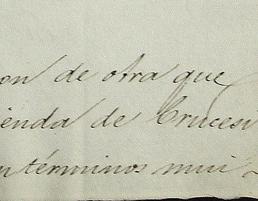 on de otra que
ienda de Cruces
n términos mui